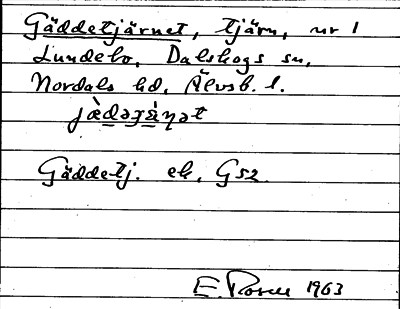 Gäddetjärnet, tjärn, nr 1
Lundebo, Dalskogs sn,
Nordals hd, Älvsb. l.
Gäddetj. ek. G52.
E. Rosell 1963